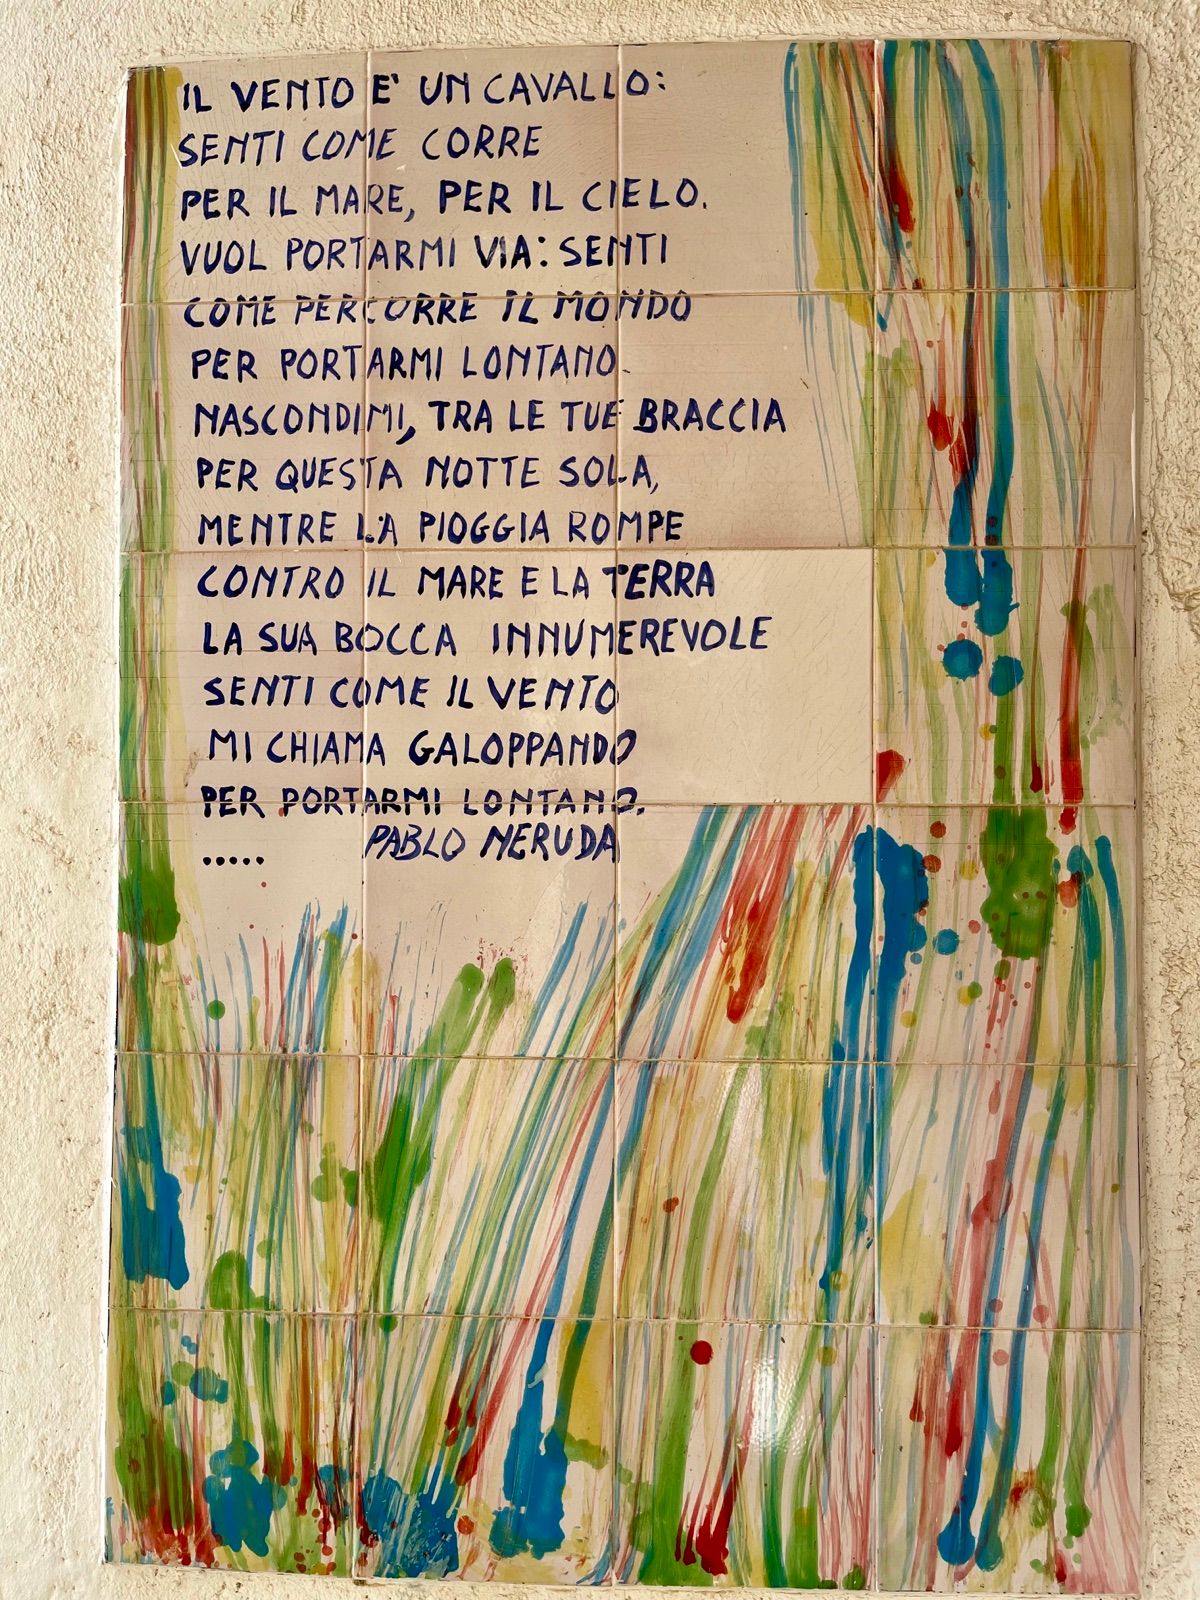 IL VENTO E' UN CAVALLO:
SENTI COME CORRE
PER IL MARE, PER IL CIELO.
VUOL PORTARMI VIA: SENTI
COME PERCORRE IL MONDO
PER PORTARMI LONTANO.
NASCONDIMI, TRA LE TUE BRACCIA
PER QUESTA NOTTE SOLA,
MENTRE LA PIOGGIA ROMPE
CONTRO IL MARE E LA TERRA
LA SUA BOCCA INNUMEREVOLE
SENTI COME IL VENTO
MI CHIAMA GALOPPANDO
PER PORTARMI LONTANO.
..... PABLO NERUDA